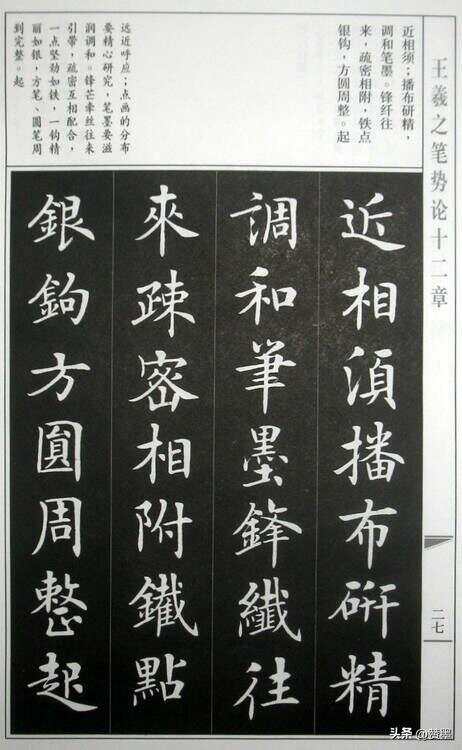 王羲之笔势论十二章
近相须；播布研精，
调和笔墨。锋纤往
来，疏密相附，铁点
银钩，方圆周整。起
远近呼应；点画的分布
要精心研究，笔墨要滋
润调和。锋芒牵丝往来
引带，疏密互相配合，
一点坚劲如铁，一钩精
丽如银，方笔、圆笔周
到完整。起
近相須播布研精
調和筆墨鋒纖往
來疎密相附鐵點
銀鉤方圓周整起
二七
头条 @赞墨